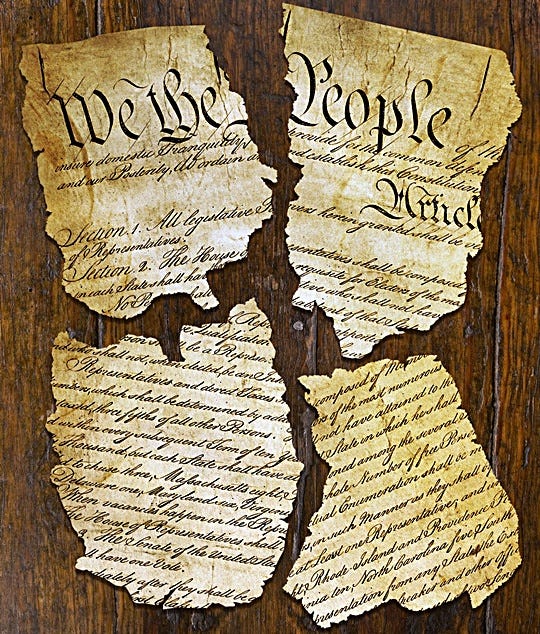 We the
ensure domestic Tranquility,
and our Posterity, do ordain
Section 1. All legislative
of Representatives.
Section 2. The House
in each State shall have
No
People
of the
provide for the common defen
and establish this Constitution
Article
wers herein granted shall be
sentatives shall be compose
requisite for Electors of the m
shall have
of that
be a Represen
Representatives and direct Taxes
mber, which shall be determined by
Years, three fifths of all other Persons.
every subsequent Term of ten
thousand, but each State shall have
to chuse three, Massachusetts eight,
Delaware one, Maryland six, Virginia
When vacancies happen in the Repre
The House of Representatives shall
The Senate of the United State
ll have one Vote.
iately after they shall be
composed of Mem
of the most numerous
not have attained to the
State in which he shall
ned among the several
hole Number of free Perso
tual Enumeration shall be m
in such Manner as they shall
at Least one Representative; and
Rhode Island and Providence
nia ten, North Carolina five, South
presentation from any State, the Exe
Speaker and other Offic